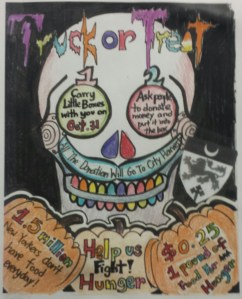 Truck or Treat
1
Carry
Little Boxes
with you on
Oct. 31
2
Ask people
to donate
money and
put it into
the box
All The Donation Will Go To City Harvest
1.5 million
New Yorkers don't
have food
everyday!
Help us
Fight!
Hunger
$0.25
1 pound of
food for the